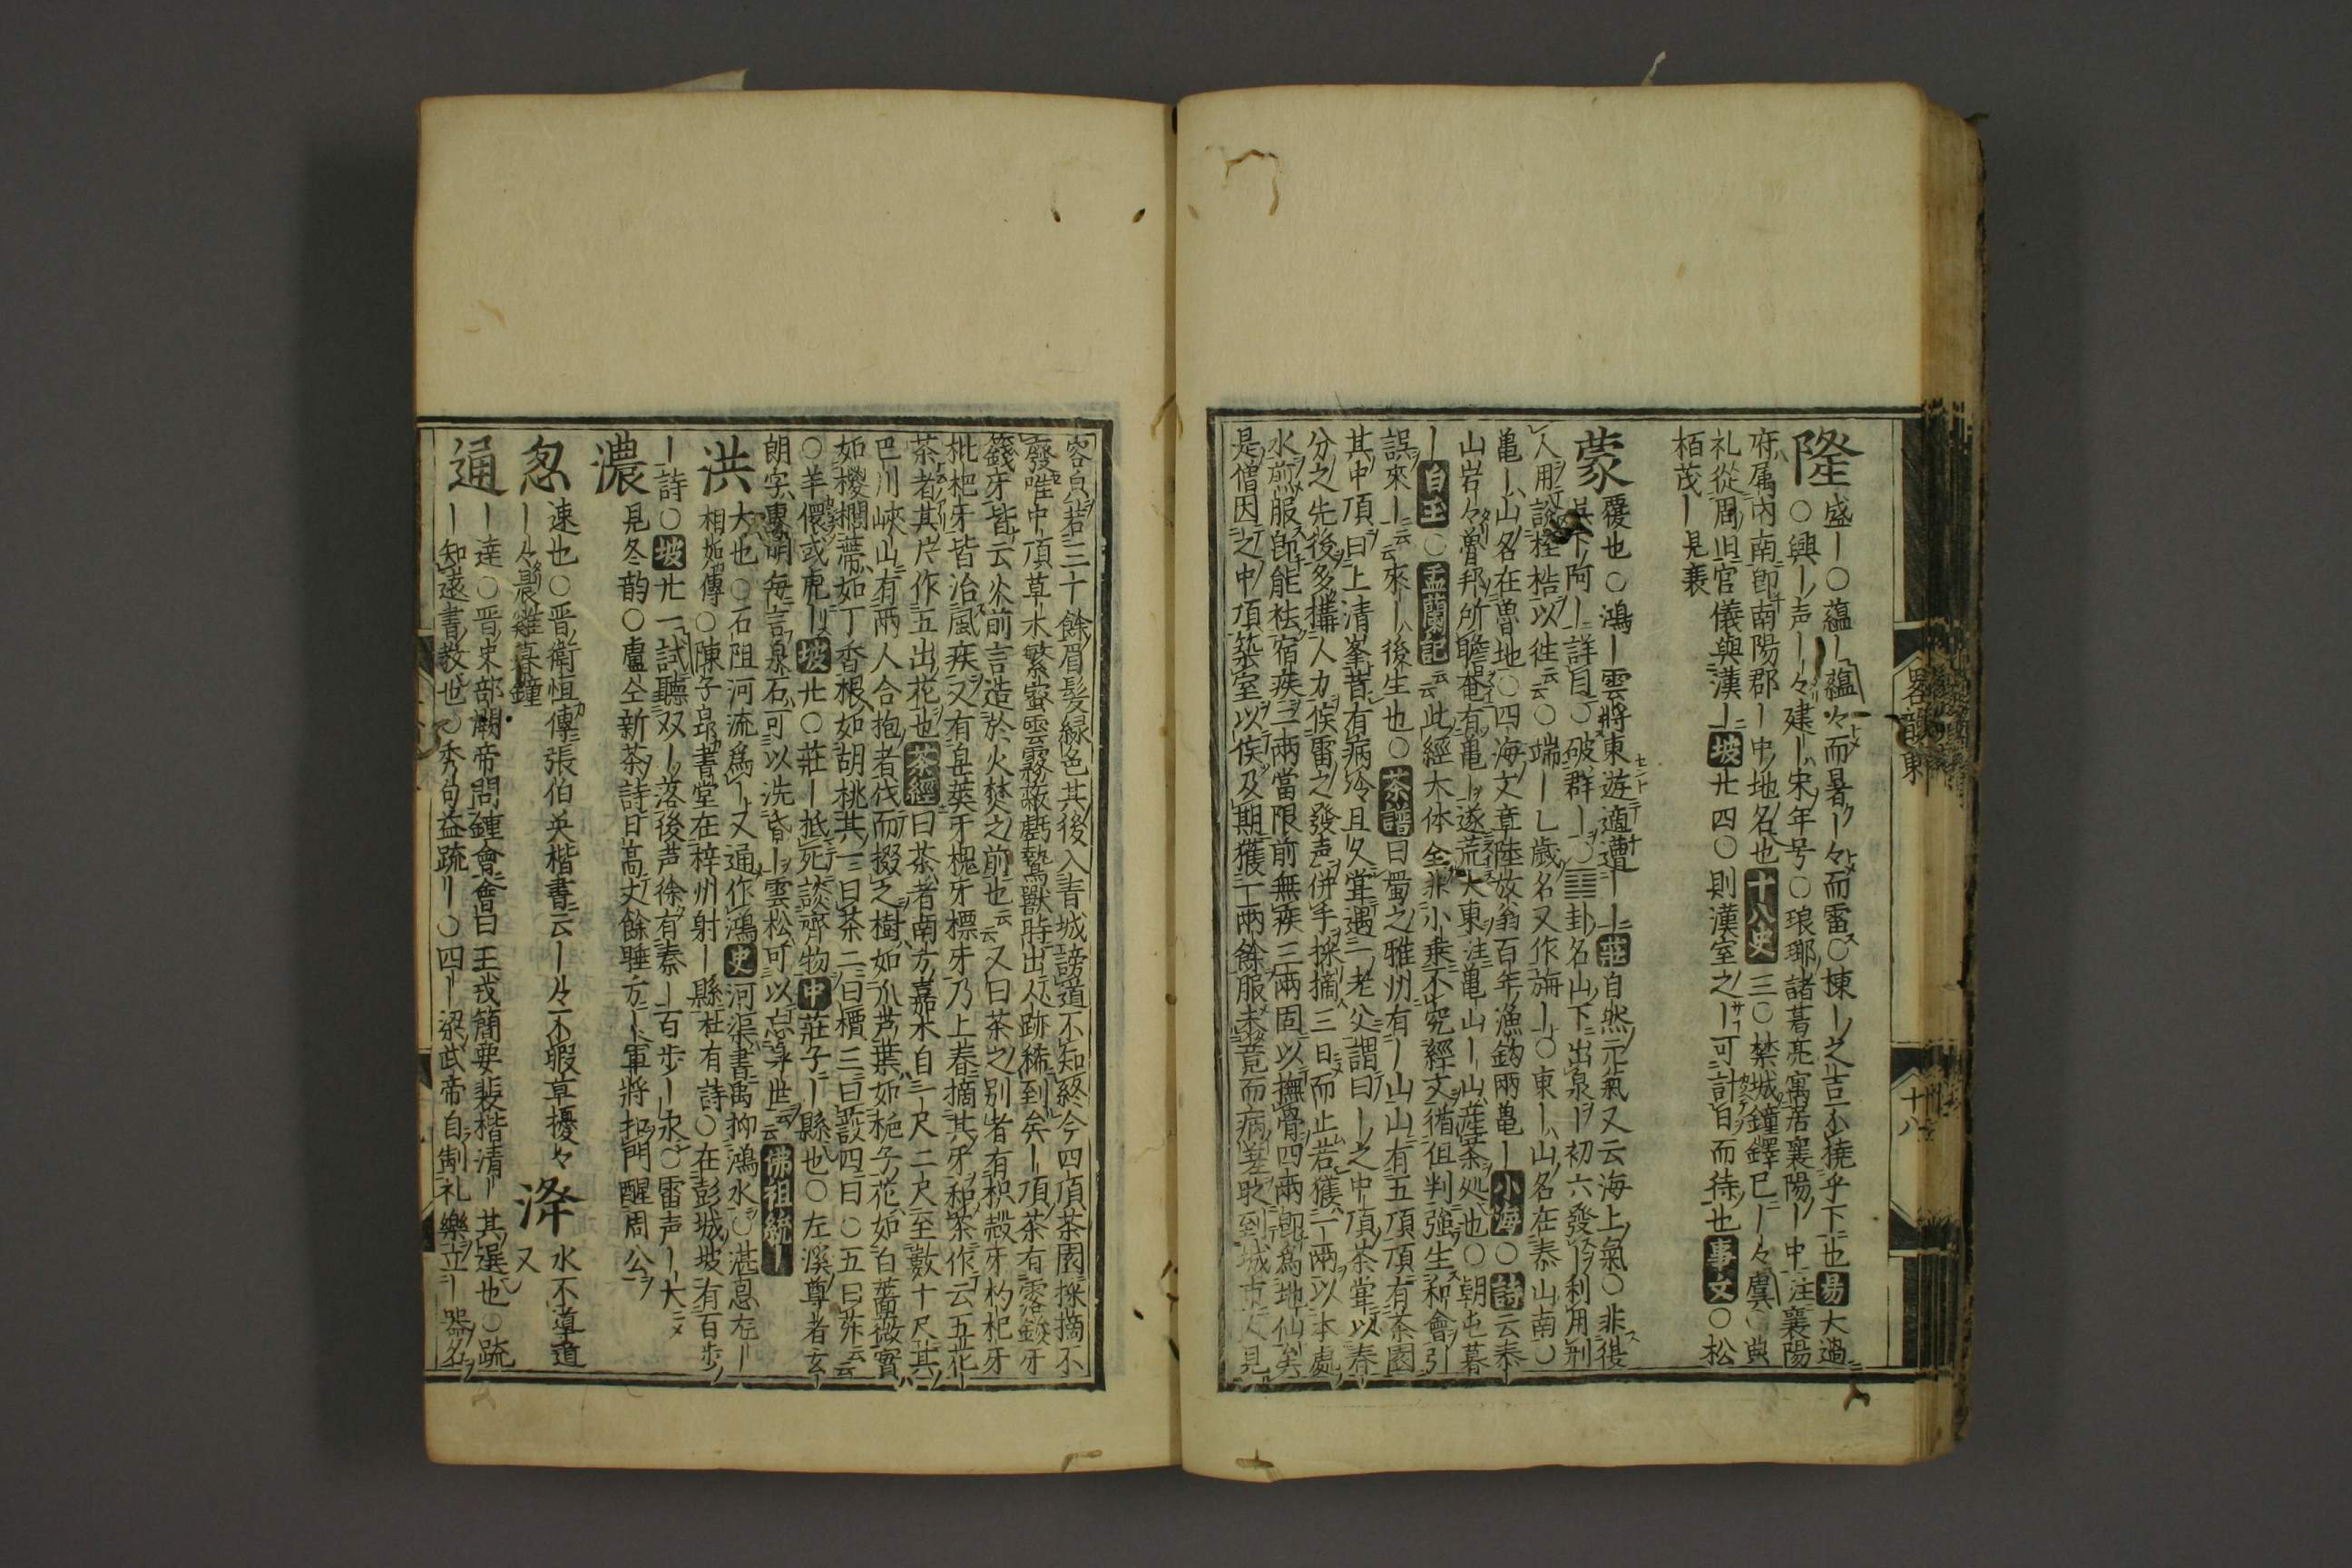 隆盛〡○蘊〡蘊々而暑〡々而雷○棟〡之吉不撓乎下也易大過
○興〡声〡々建〡宋年号○琅瑯諸葛亮寓居襄陽〡中注襄陽
府属内南即南陽郡〡中地名也十八史三○禁城鐘鐸已〡々虞○典
礼從周旧官儀與漢〡坡廿四○則漢室之〡可計日而待也事文○松
栢茂〡見裘
蒙覆也○鴻〡雲將東遊適遭〡〡莊自然元氣又云海上氣○非復
呉下阿〡詳目○破群〡○䷃卦名山下出泉〡初六發〡利用刑
人用説桎梏以往云云○端〡乚歳名又作旃〡○東〡山名在泰山南○
亀〡山名在魯地○四海文章陸放翁百年漁釣兩亀〡小海○詩云泰
山岩々魯邦所瞻奄有亀〡遂荒大東注亀山〡山産茶処也○朝屯暮
〡自玉○盂蘭記云此經大体全非小乗不究經文循但判強生和會引
誤來〡云云來〡後生也○茶譜曰蜀之雅州有〡山山有五頂頂有茶園
其中頂曰上清峯昔有病冷且久甞遇一老父謂曰〡之中頂茶甞以春
分之先後多搆人力俟雷之發声併手採摘三日而止若獲一兩以本處
水煎服即能袪宿疾二兩當限前無疾三兩固以撫骨四兩即為地仙矣
是僧因之中頂築室以俟及期獲一兩餘服未竟而病差時到城市人見
容皃若三十餘眉髪緑色其後入青城謗道不知終今四頂茶園採摘不
廢唯中頂草木繁蜜雲霧蔽虧鷙獸時出人跡稀到矣〡頂茶有露鋑牙
籛牙皆云火前言造於火焚之前也云云又曰茶之別者有枳殻牙杓杞牙
枇杷牙皆治風疾又有皀莢牙槐牙標牙乃上春摘其牙和茶作云五花
茶者其片作五出花也茶經曰茶者南方嘉木自一尺二尺至數十尺其
巴川峽山有兩人合抱者伐而掇之樹如爪芦葉如梔子花如白薔薇實
如椶櫚蔕如丁香根如胡桃其一曰茶二曰檟三曰蔎四曰○五曰荈云云
○羊偎或虎〡坡廿○莊〡抵死談齊物中莊子〡縣也○左溪尊者玄
朗字惠明毎言泉石可以洗昏〡雲松可以忘身世云云佛祖統〡
洪大也○石阻河流為〡又通作鴻史河渠書禹抑鴻水○湛恩厖〡
相如傳○陳子昂書堂在梓州射〡縣杜有詩○在彭城坡有百歩
〡詩○坡廿一試聽双〡落後芦徐有泰〡百歩〡永○雷声〡大
濃見冬韵○盧仝新茶詩日高丈餘睡方〡軍將扣門醒周公
怱速也○晋衛恒傳張伯英楷書云〡々不暇草擾々洚水不遵道
〡々晨雞暮鐘又
通〡達○晋史部闕帝問鍾會會曰王戎簡要裴楷清〡其選也○疏
〡知遠書教也○秀句益疏〡○四〡梁武帝自制礼樂立〡器名
畧韻東
十八